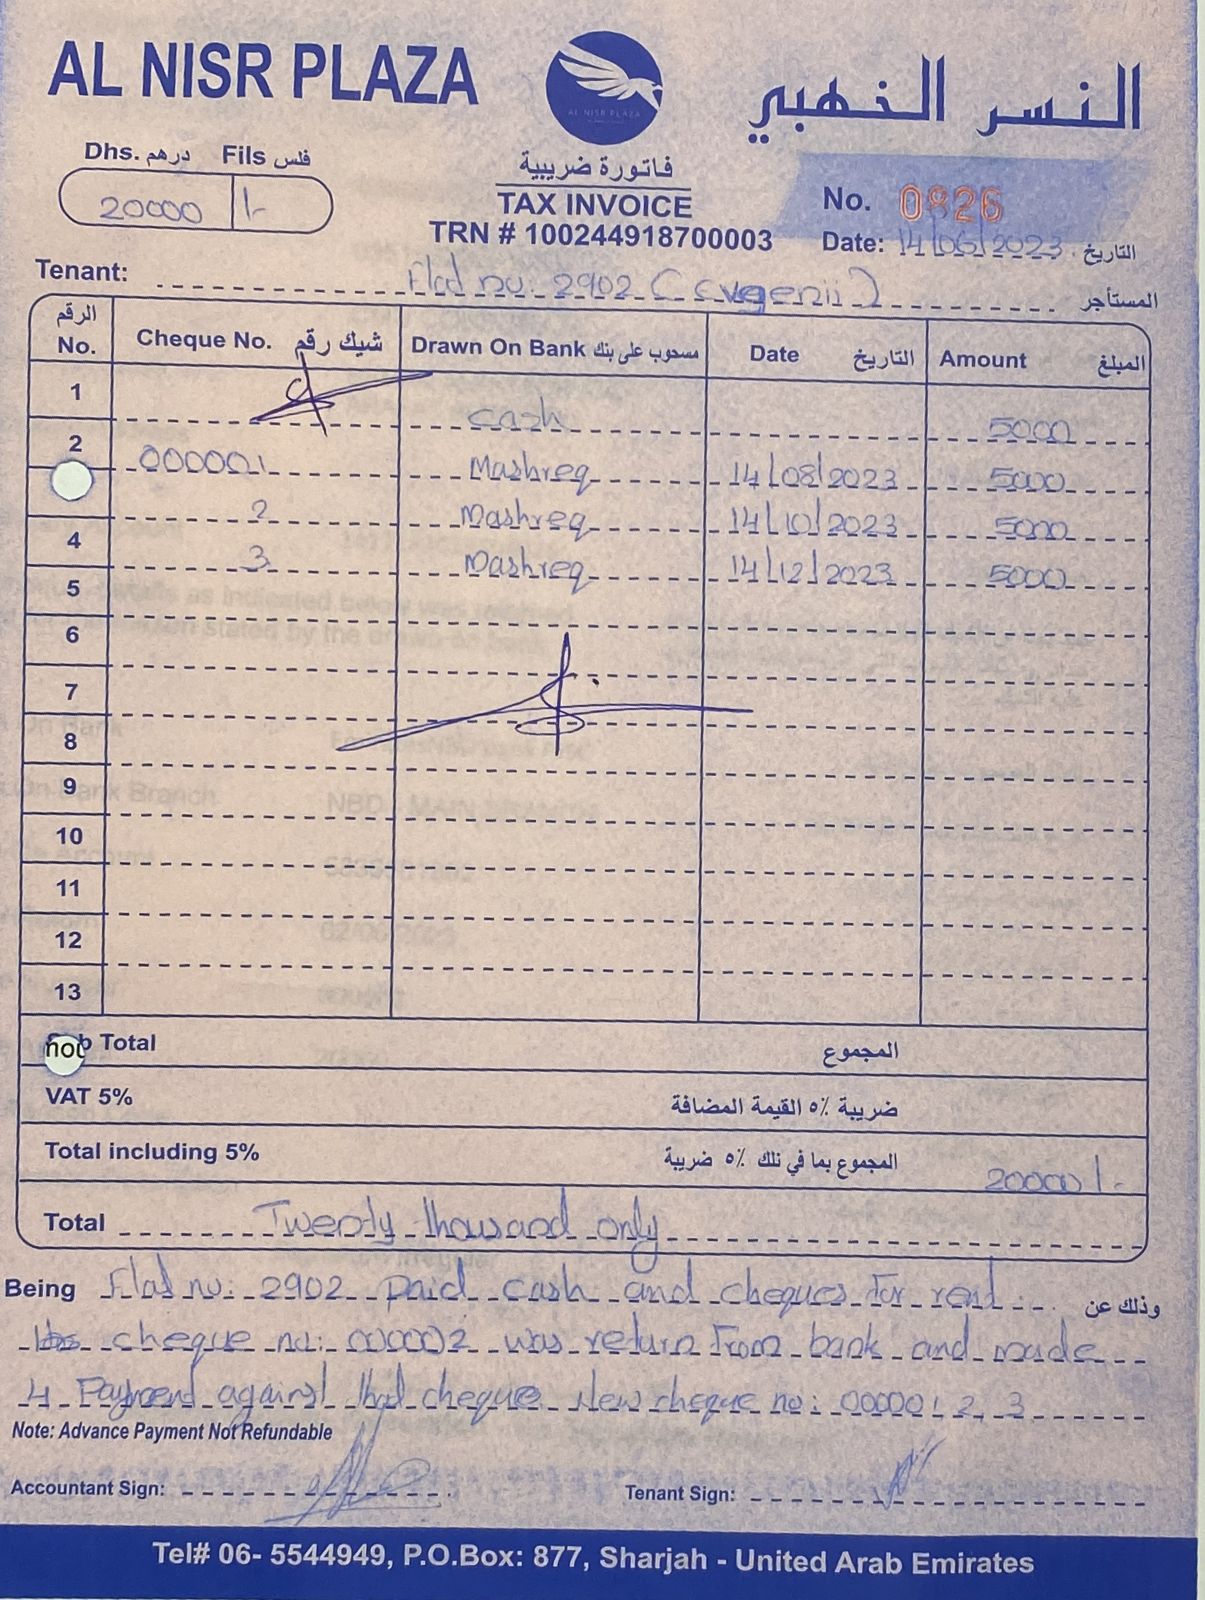 AL NISR PLAZA
النسر الخهبي
AL NISR PLAZA
Dhs. درهم Fils فلس
20000 /-
فاتورة ضريبية
TAX INVOICE
TRN # 100244918700003
No. 0826
Date: 14/06/2023 التاريخ
Tenant: Flat no: 2902 (evgenii) المستأجر
الرقم No. Cheque No. شيك رقم Drawn On Bank مسحوب على بنك Date التاريخ Amount المبلغ
1 cash 5000
2 000001 Mashreq 14/08/2023 5000
2 Mashreq 14/10/2023 5000
4 3 Mashreq 14/12/2023 5000
5
6
7
8
9
10
11
12
13
Sub Total المجموع
VAT 5% ضريبة ٥٪ القيمة المضافة
Total including 5% المجموع بما في نلك ٥٪ ضريبة 20000/-
Total Twenty thousand only
Being Flat no: 2902 paid cash and cheques for rent وذلك عن
cheque no: 000002 was return from bank and made
4 Payment against that cheque New cheque no: 000001 2, 3
Note: Advance Payment Not Refundable
Accountant Sign: Tenant Sign:
Tel# 06- 5544949, P.O.Box: 877, Sharjah - United Arab Emirates